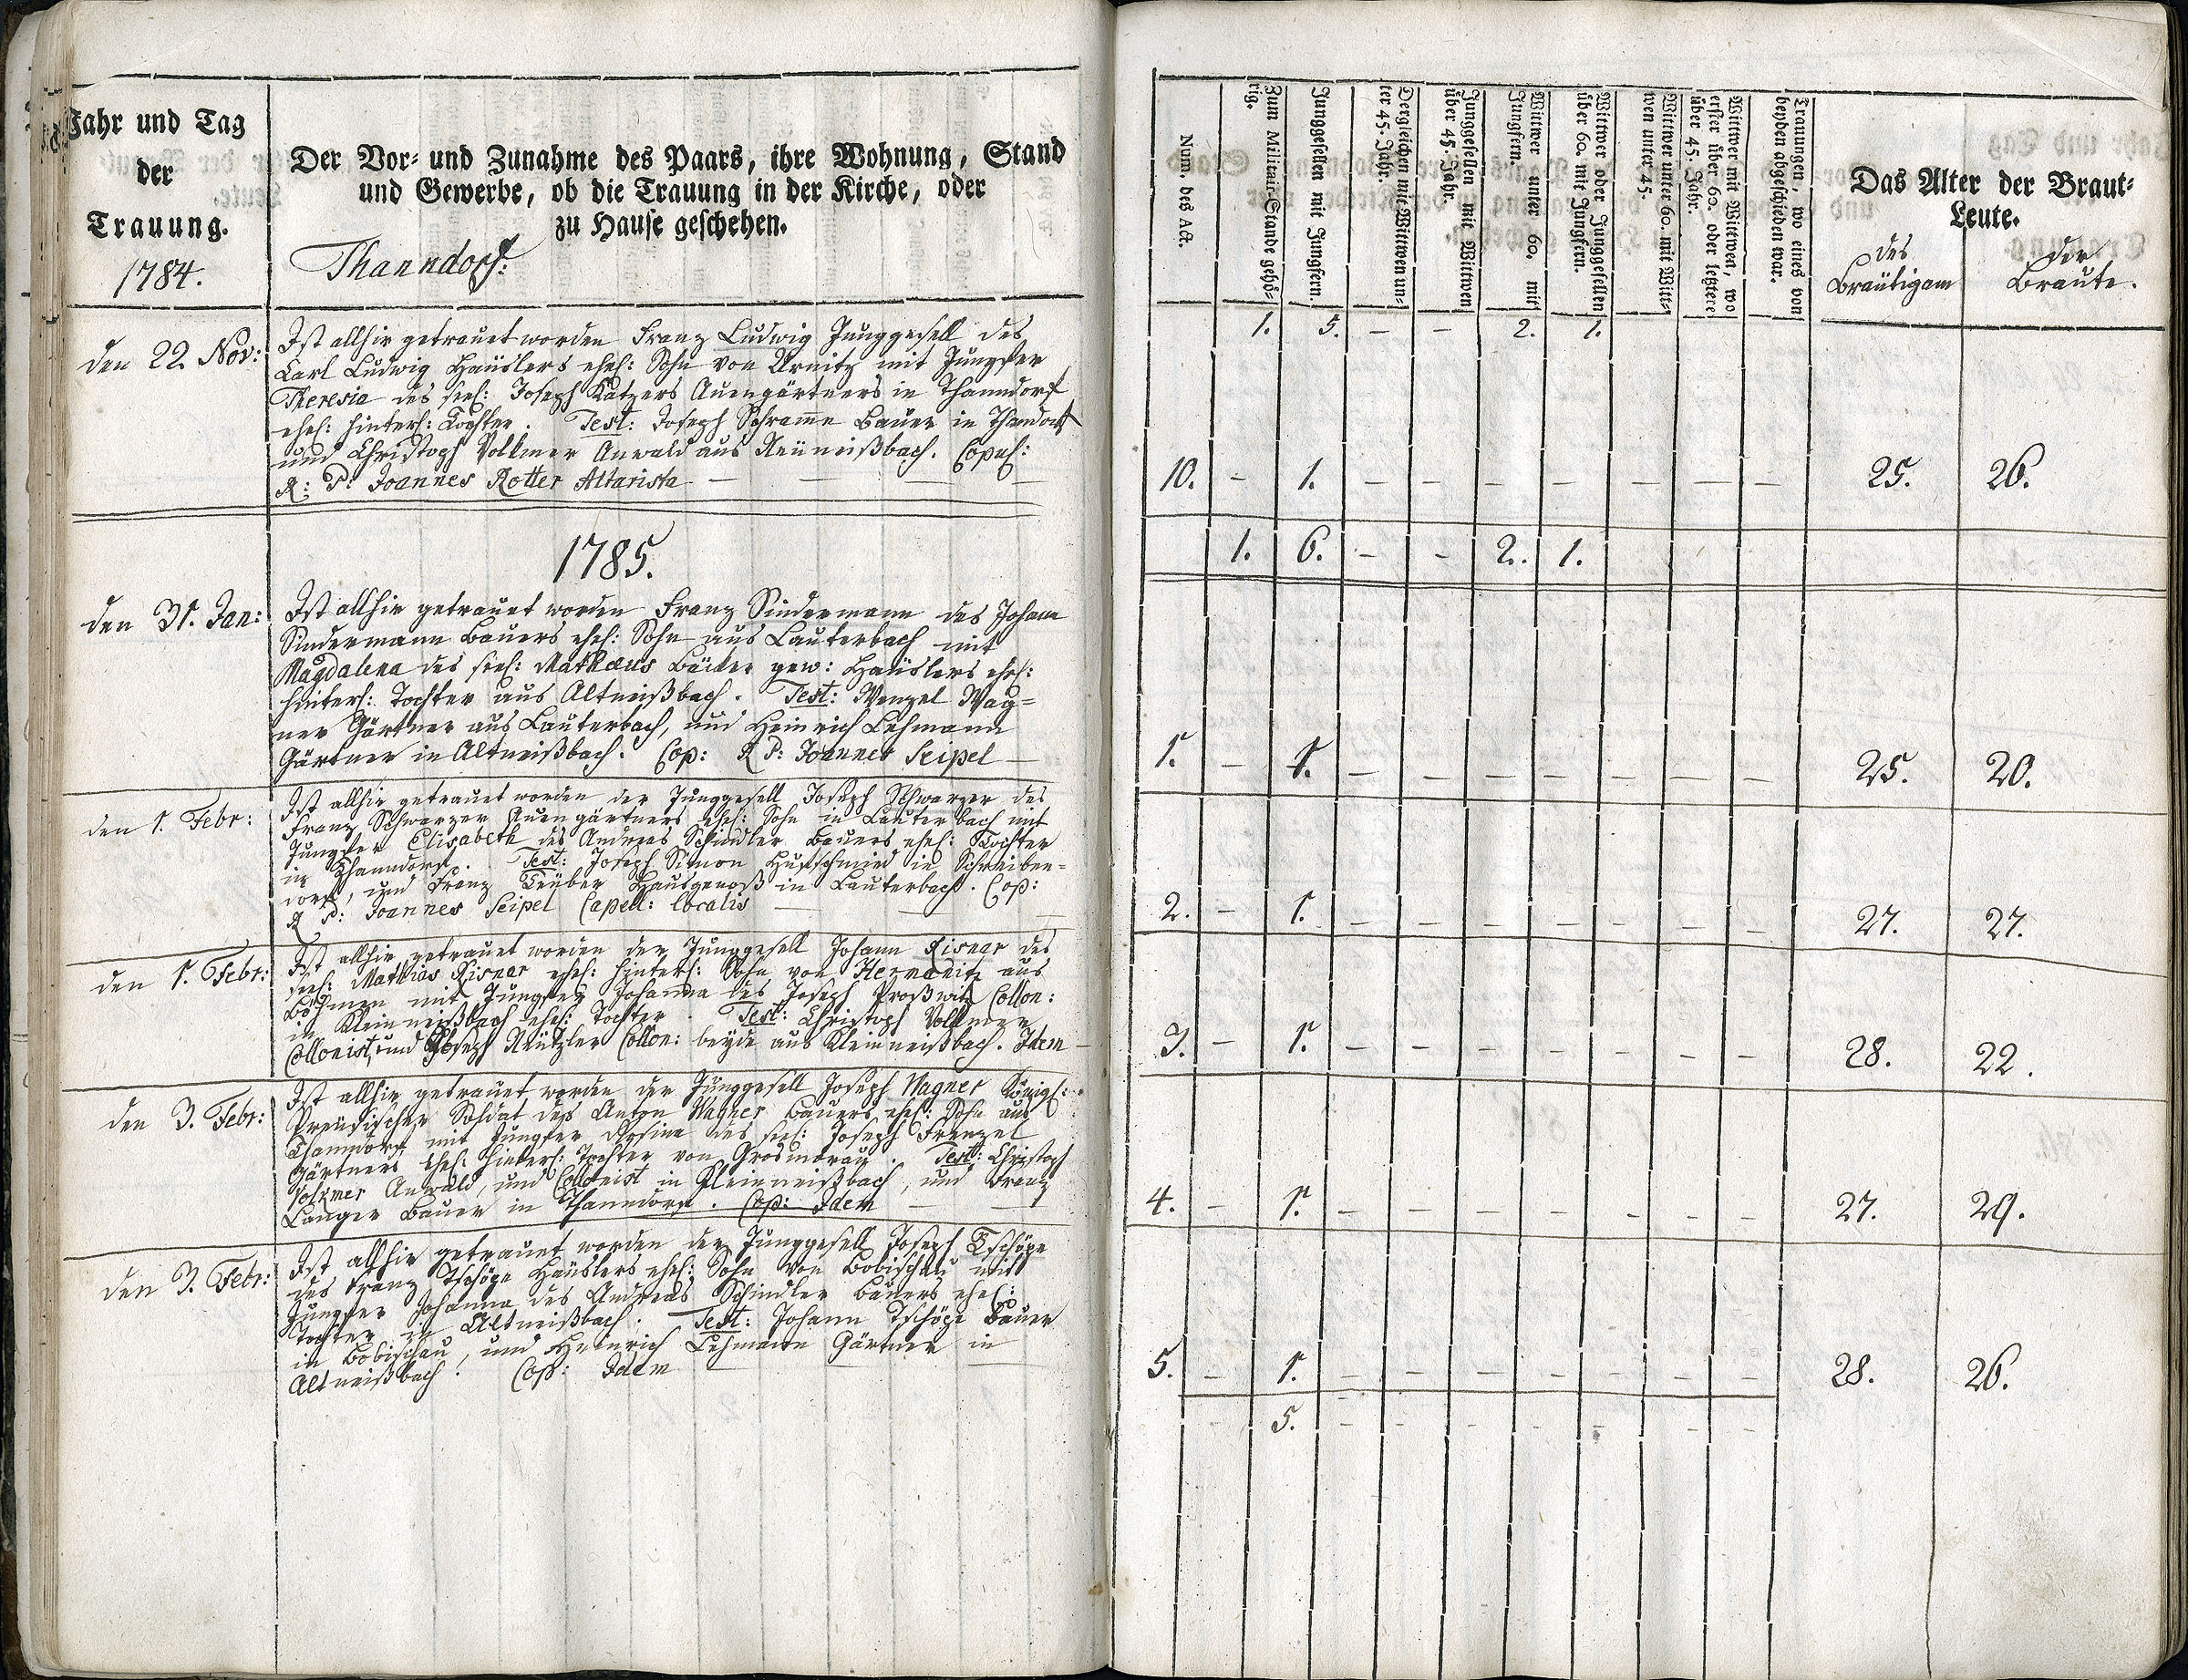 Jahr und Tag
der
Trauung.
1784.
Der Vor- und Zunahme des Paars, ihre Wohnung, Stand
und Gewerbe, ob die Trauung in der Kirche, oder
zu Hause geschehen.
Thanndorf:
den 22. Nov:
Ist allhir getrauet worden Franz Ludwig Junggesell des
Carl Ludwig Häuslers ehel: Sohn von Urnitz mit Jungfer
Theresia des seel: Joseph Katzers Auengärtners in Thanndorf
ehel: hinterl: Tochter. Test: Joseph Schramm Bauer in Thandorf
und Christoph Volkmer Anwald aus Neuneißbach. Copul:
R: P: Joannes Rotter Altarista
1785.
den 31. Jan:
Ist allhir getrauet worden Franz Sindermann des Johann
Sindermann Bauers ehel: Sohn aus Lauterbach mit
Magdalena des seel: Mathæus Bäcker gew: Häuslers ehel:
hinterl: Tochter aus Altneißbach. Test: Wenzel Wag=
ner Gärtner aus Lauterbach, und Heinrich Lehmann
Gärtner in Altneißbach. Cop: R P: Joannes Seipel
den 1. Febr:
Ist allhir getrauet worden der Junggesell Joseph Schwarzer des
Franz Schwarzer Auengärtners ehel: Sohn in Lauterbach mit
Jungfer Elisabeth des Andreas Schindler Bauers ehel: Tochter
in Thanndorf. Test: Joseph Simon Hufschmied in Schreiben=
dorf, und Franz Teuber Hausgenoß in Lauterbach. Cop:
R P: Joannes Seipel Capell: localis
den 1. Febr:
Ist allhir getrauet worden der Junggesell Johann Risner des
seel: Mathias Risner ehel: hinterl: Sohn von Hermanitz aus
Böhmen mit Jungfer Johanna des Joseph Proßwitz Collon:
in Kleinneißbach ehel: Tochter. Test: Christoph Vollmer
Collonist, und Joseph Neutzler Collon: beyde aus Kleinneißbach. Idem
den 3. Febr:
Ist allhir getrauet worden der Junggesell Joseph Wagner Königl:
Preußischer Soldat des Anton Wagner Bauers ehel: Sohn aus
Thanndorf mit Jungfer Rosina des seel: Joseph Frenzel
Gärtners ehel: hinterl: Tochter von Grosmorau. Test: Christoph
Volkmer Anwald, und Collonist in Kleinneißbach, und Franz
Langer Bauer in Thanndorf. Cop: Idem
den 3. Febr:
Ist allhir getrauet worden der Junggesell Joseph Tschöpe
des Franz Tschöpe Häuslers ehel: Sohn von Bobischau mit
Jungfer Johanna des Andreas Schindler Bauers ehel:
Tochter in Altneißbach. Test: Johann Tschöpe Bauer
in Bobischau, und Heinrich Lehmann Gärtner in
Altneißbach. Cop: Idem
Num. des Act.
Zum Militair-Stande gehö-
rig.
Junggesellen mit Jungfern.
Dergleichen mit Wittwen un-
ter 45. Jahr.
Junggesellen mit Wittwen
über 45. Jahr.
Wittwer unter 60. mit
Jungfern.
Wittwer oder Junggesellen
über 60. mit Jungfern.
Wittwer unter 60. mit Witt-
wen unter 45.
Wittwer mit Wittwen, wo
erster über 60. oder letztere
über 45. Jahr.
Trauungen, wo eines von
beyden abgeschieden war.
Das Alter der Braut-
Leute.
des Bräutigam
der Braute.
1. 5. – – 2. 1.
10. – 1. – – – – – – – 25. 26.
1. 6. – – 2. 1.
1. – 1. – – – – – – – 25. 20.
2. – 1. – – – – – – – 27. 27.
3. – 1. – – – – – – – 28. 22.
4. – 1. – – – – – – – 27. 29.
5. – 1. – – – – – – – 28. 26.
– 5. – – – – – – –